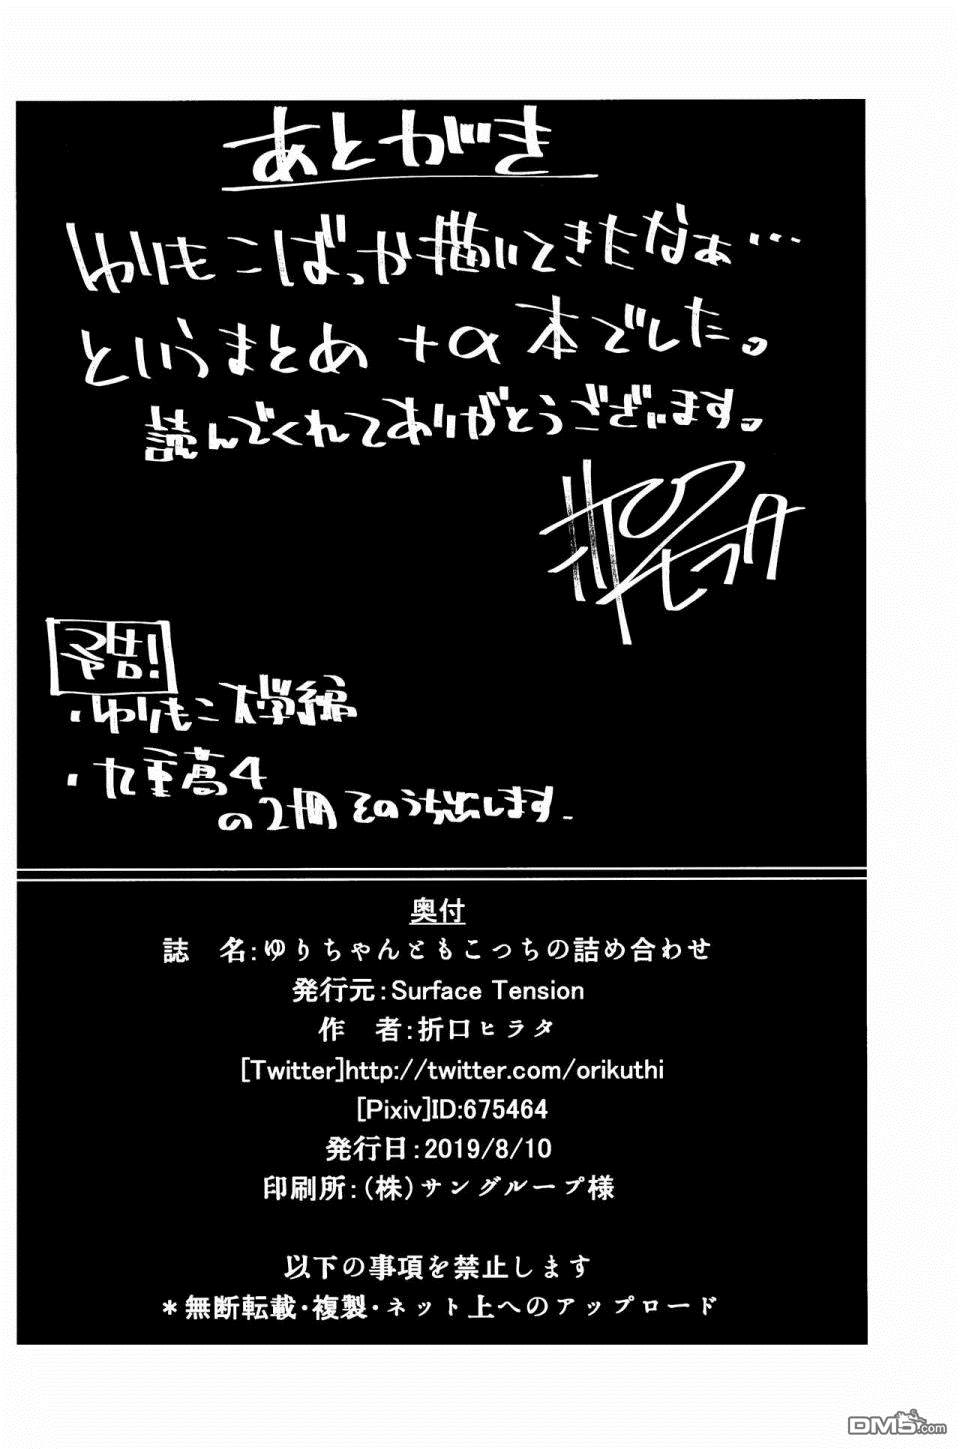 あとがき
ゆりもこばっか描いてきたなぁ…
というまとめ+α本でした。
読んでくれてありがとうございます。
予告!
・ゆりもこ大学編
・九重高4
の2冊そのうち出します.
奥付
誌 名:ゆりちゃんともこっちの詰め合わせ
発行元:Surface Tension
作 者:折口ヒラタ
[Twitter]http://twitter.com/orikuthi
[Pixiv]ID:675464
発行日:2019/8/10
印刷所:(株)サングループ様
以下の事項を禁止します
*無断転載・複製・ネット上へのアップロード
DM5.com